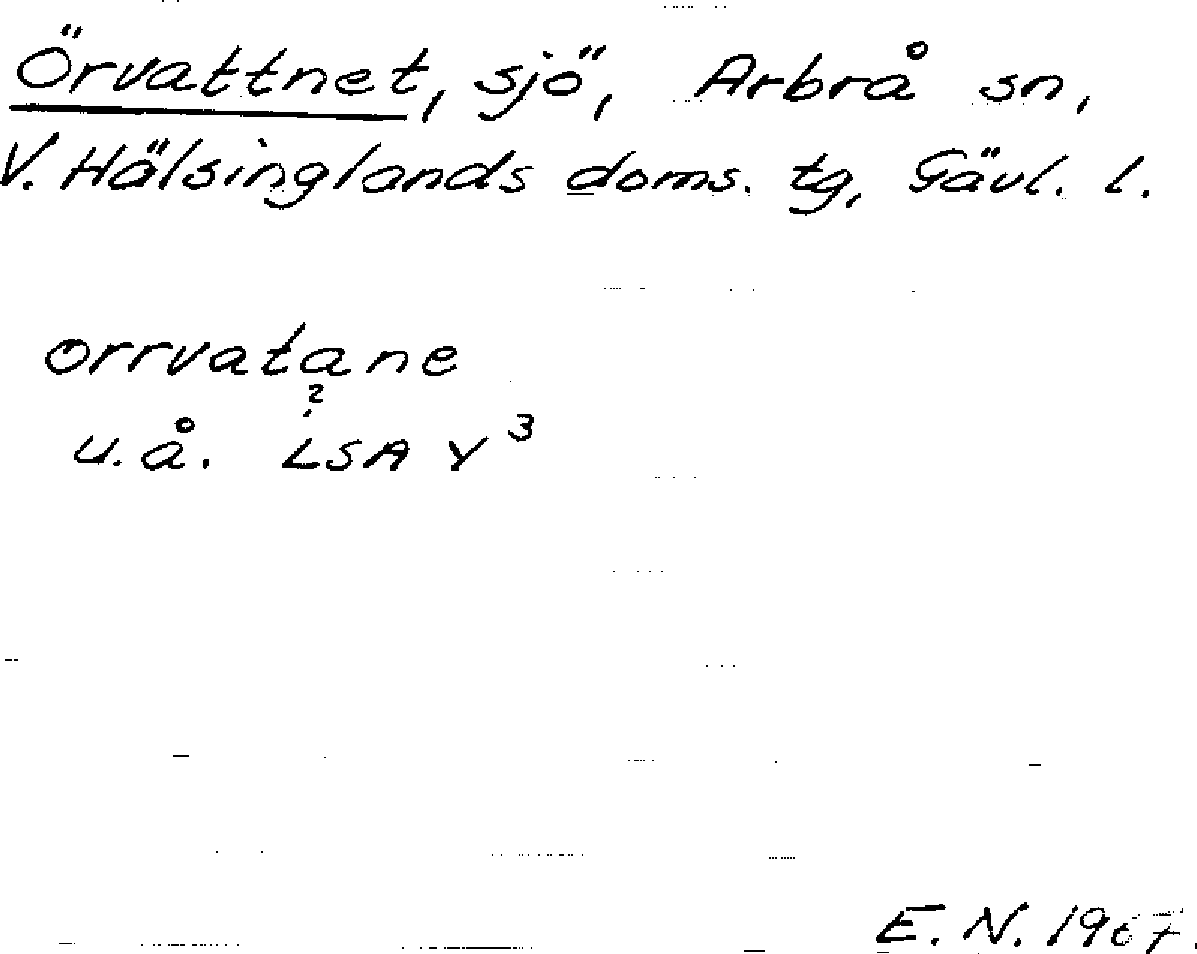 Örvattnet, sjö, Arbrå sn,
V. Hälsinglands doms. tg, Gävl. l.
orrvatane
?
u.å. LSA Y³
E. N. 1967.